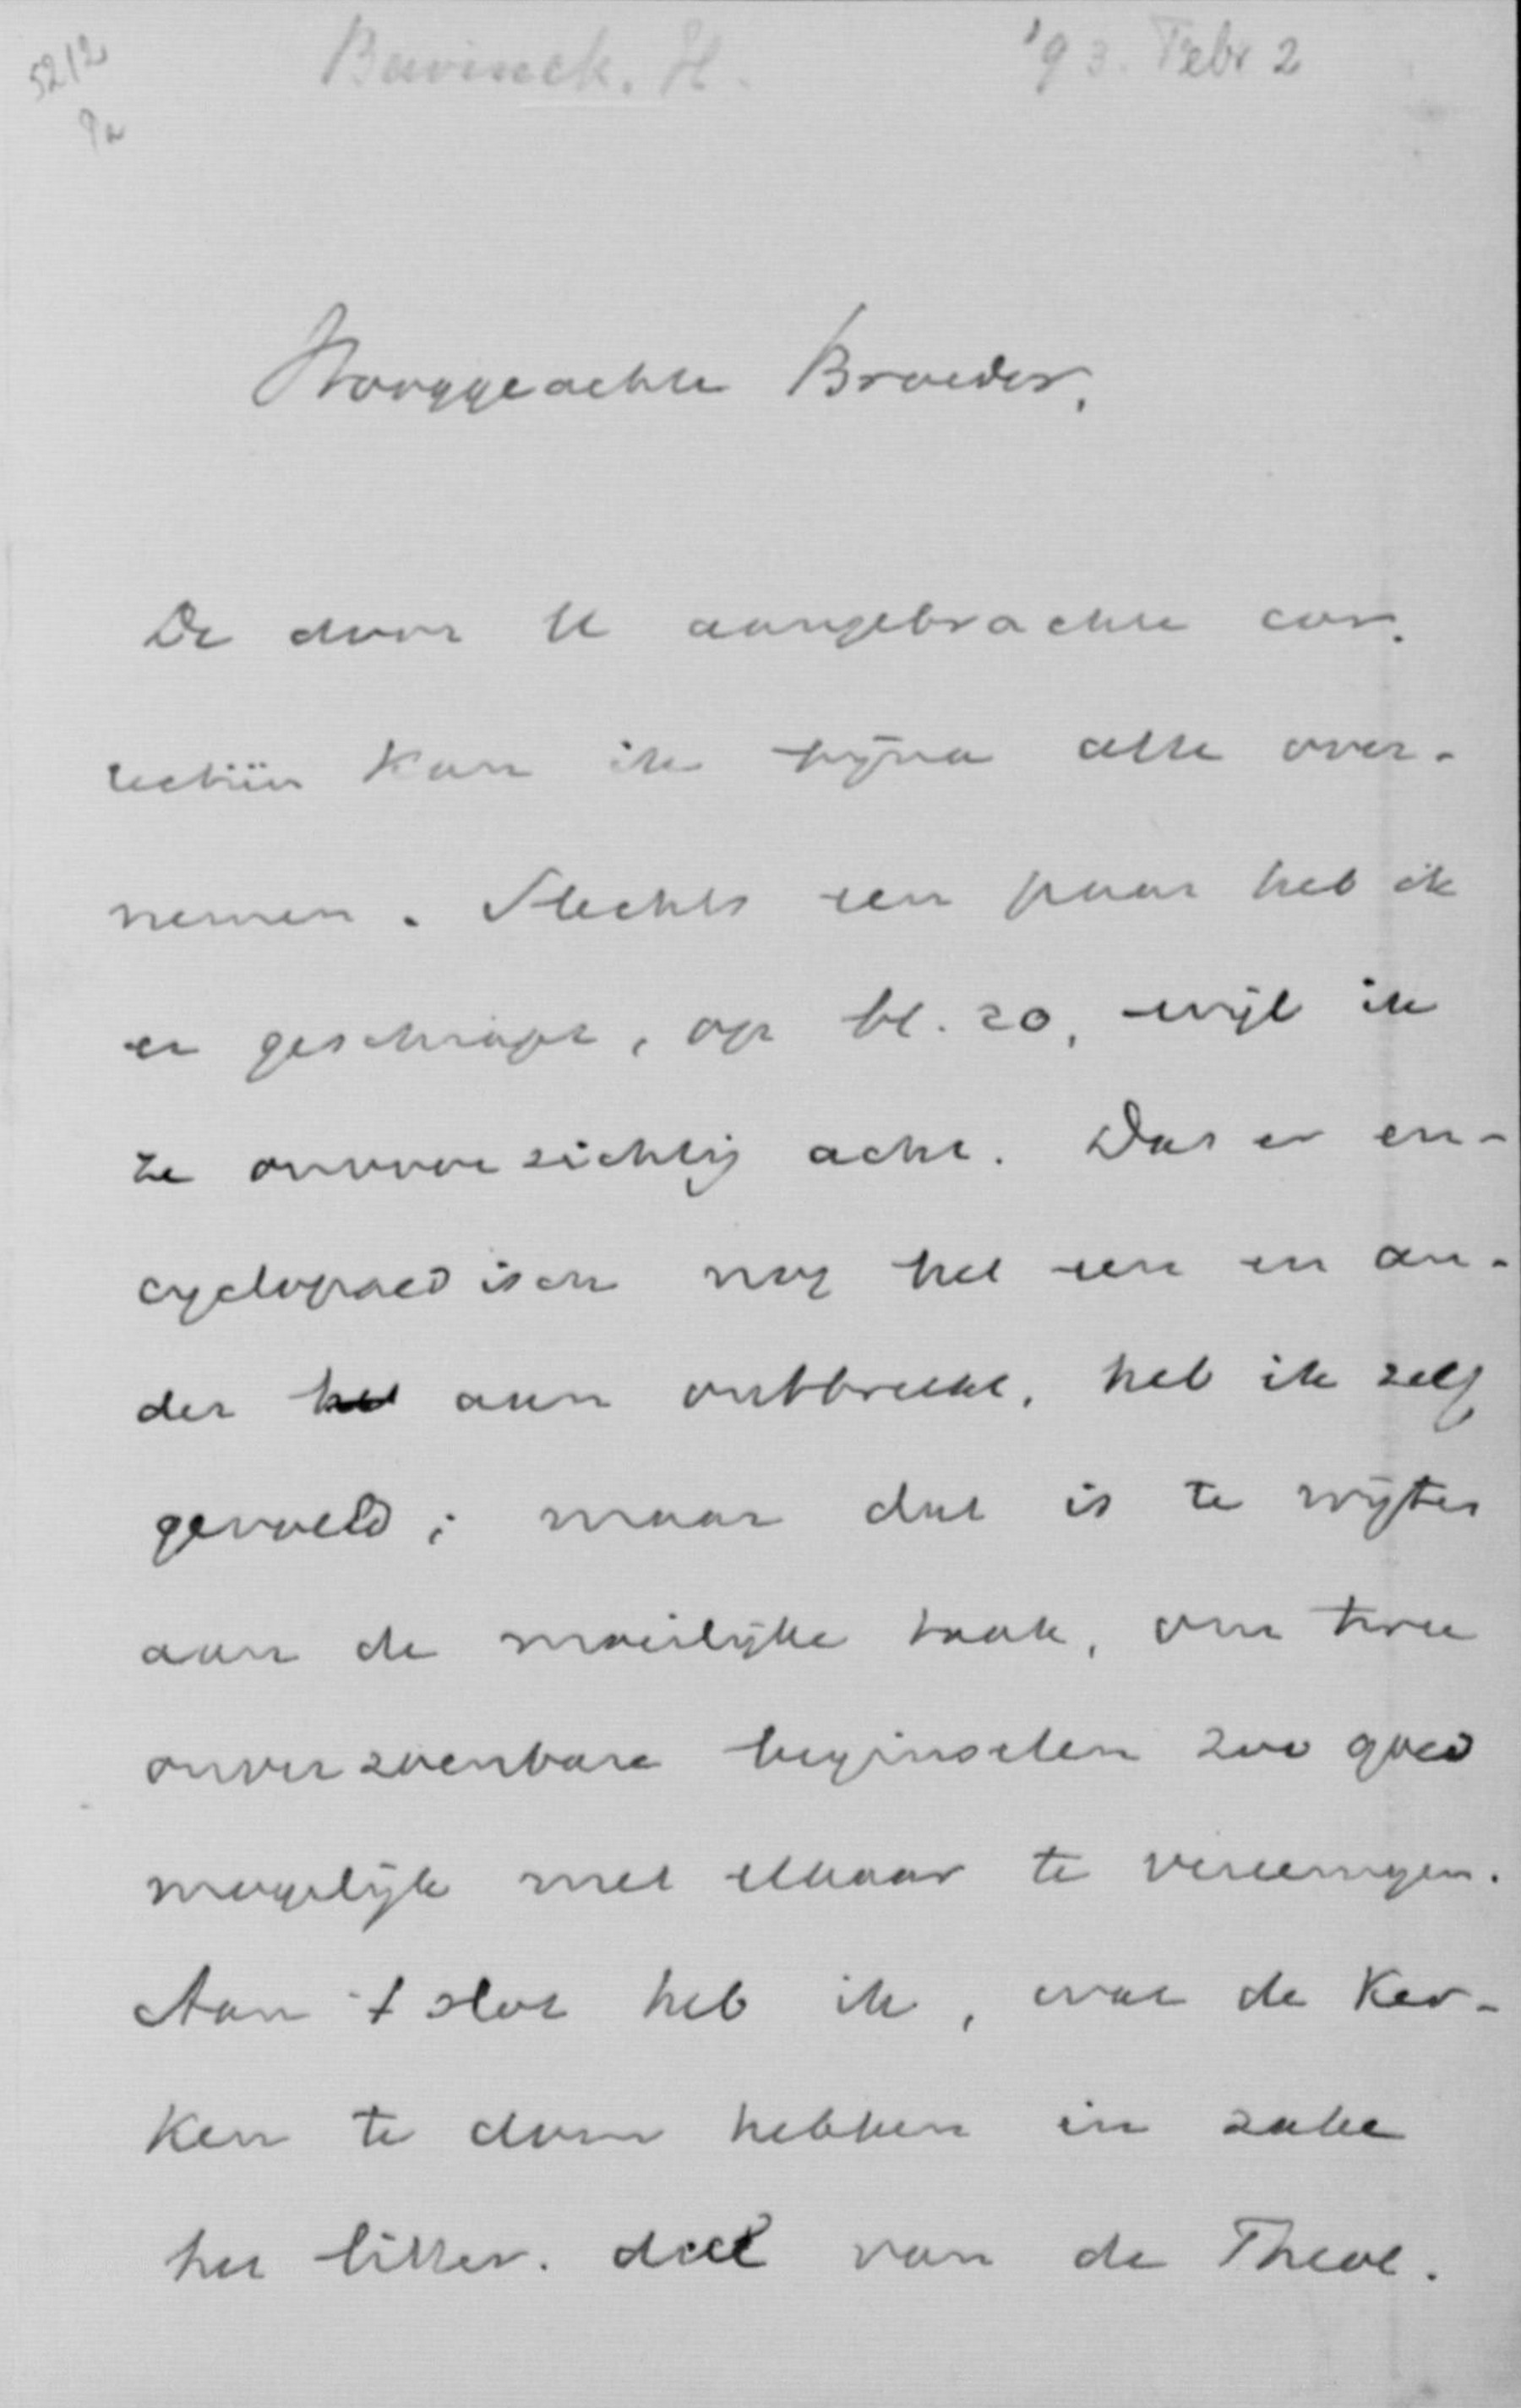 5212
Bavinck. H. '93. Febr 2
Hooggeachte Broeder,
De door U aangebrachte cor-
rectiën kan ik bijna alle over-
nemen. Slechts een paar heb ik
er geschrapt, op bl. 20, wijl ik
ze onvoorzichtig acht. Dat er en-
cyclopaedisch nog het een en an-
der aan ontbreekt, heb ik zelf
gevoeld; maar dat is te wijten
aan de moeilijke taak, om twee
onverzoenbare beginselen zoo goed
mogelijk met elkaar te vereenigen.
Aan 't slot heb ik, wat de Ker-
ken te doen hebben in zake
het litter. deel van de Theol.